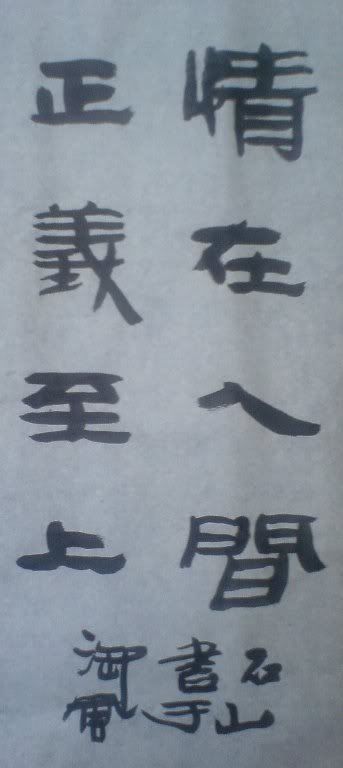 情在人間
正義至上
石山
書于
御風